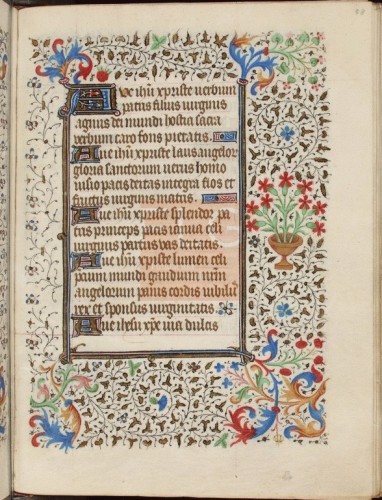 Aue ihu xpriste uerbum
patris filius uirginis
agnus dei mundi hostia sacra
verbum caro fons pietatis.
Aue ihu xpriste laus angelor
gloria sanctorum uenus homo
uisio pacis deitas integra flos et
fructus uirginis matris.
Aue ihu xpriste splendor pa
tris princeps pacis ianua celi
uirginis partus vas deitatis.
Aue ihu xpriste lumen celi
panum mundi gaudium nrm
angelorum panis cordis iubilu
rex et sponsus uirginitatis
Aue ihesu xpe uia dulcis